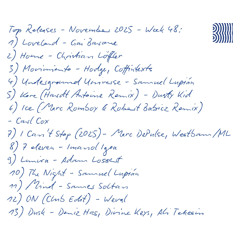 Top Releases - November 2025 - Week 48:
1) Loveland - Gai Barone
2) Home - Christian Löffler
3) Movimiento - Hodge, Coffintexts
4) Underground Universe - Samuel Lupián
5) Kere (Hardt Antoine Remix) - Dusty Kid
6) Ice (Marc Romboy & Robert Babicz Remix)
- Carl Cox
7) I Can't Stop (2025) - Marc DePulse, Westbam/ML
8) 7 eleven - Imanol Igea
9) Lumira - Adam
10) The Night - Samuel Lupián
11) Mind - Sames Soltan
12) ON (Club Edit) - Weval
13) Dusk - Deniz Has, Divine Keys, Ali Teksin